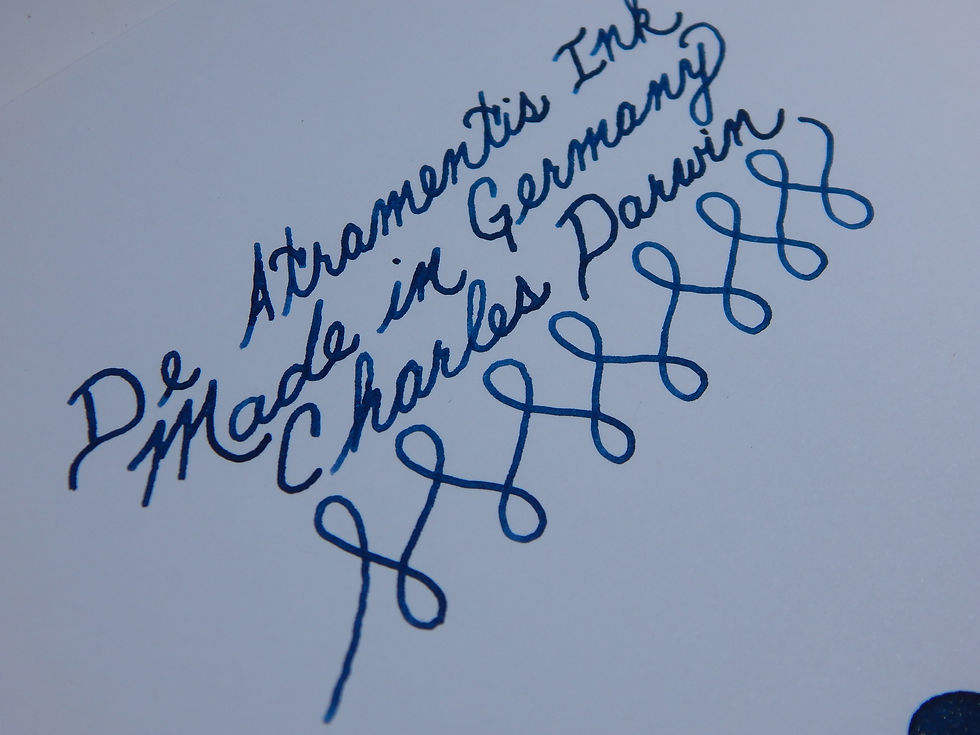 De Atramentis Ink
Made in Germany
Charles Darwin